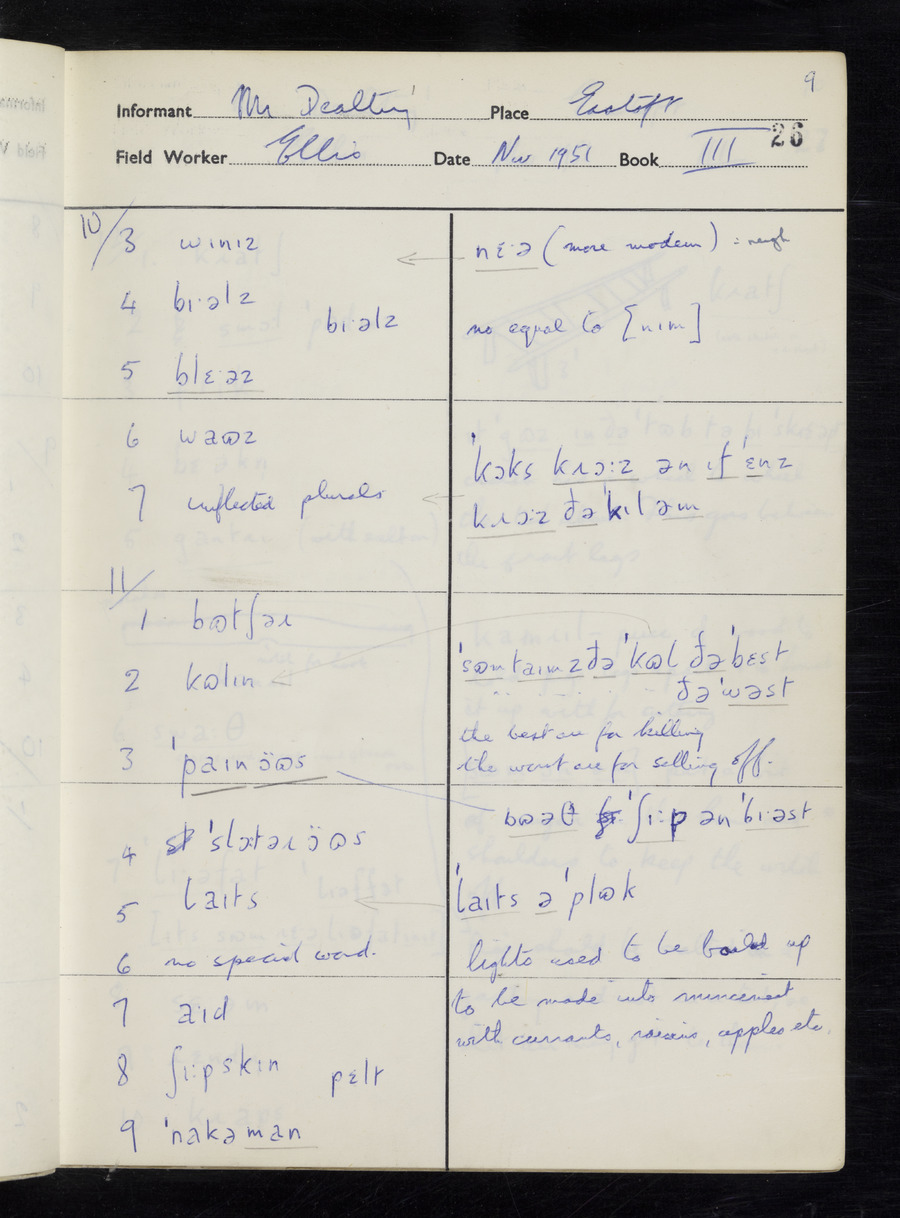 9
Informant Mr Dealtry Place Eastoft
26
Field Worker Ellis Date Nov 1951 Book III
10/3 wɪnɪz
nɛ·ə (more modern) = neigh
4 bɪ·əlz
bɪ·əlz
no equal to [nɪm]
5 blɛ·əz
6 waɷz
'kɔks kɹɔ:z ən ɪf 'ɛnz
7 inflected plurals
kɹɔ:z ðə'kɪl əm
11/
1 bɷtʃəɹ
2 kɷlɪn
'sɷmtaɪmz ðə 'kɷl ðə 'bɛst
ðə 'wəst
the best are for killing
3 'paɪnöɷs
the worst are for selling off.
bɷəθ 'ʃɪ:p ən 'bɪəst
4 'slɔ:təɹöɷs
5 laɪts
'laɪts ə 'plɷk
6 no special word.
lights used to be boiled up
7 aɪd
to be made into mincemeat
with currants, raisins, apples etc.
8 ʃɪ:pskɪn pɛlt
9 'nakəman